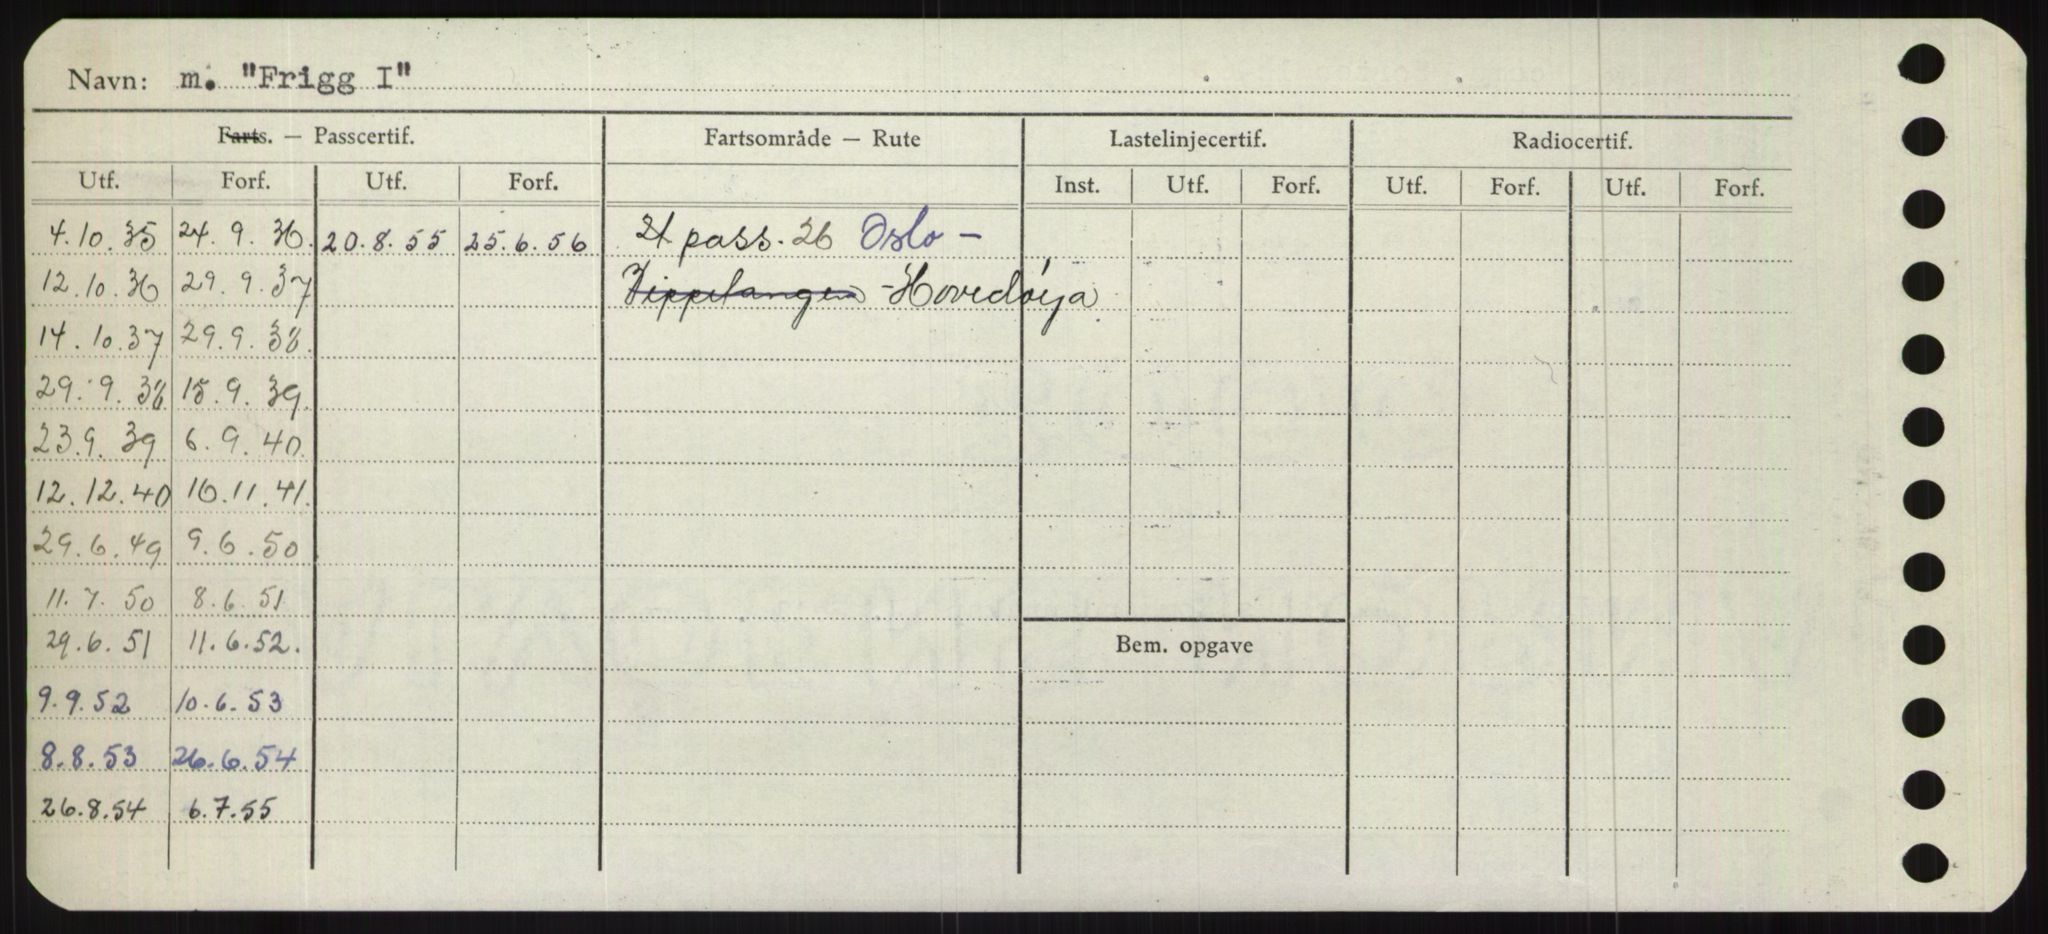 Navn: m. "Frigg I"
Farts. — Passcertif. Fartsområde — Rute Lastelinjecertif. Radiocertif.
Utf. Forf. Utf. Forf. Inst. Utf. Forf. Utf. Forf. Utf. Forf.
4.10.35 24.9.36. 20.8.55 25.6.56 pass. 26 Oslo -
12.10.36 29.9.37 Vippetangen - Hovedøya
14.10.37 29.9.38.
29.9.38 15.9.39.
23.9.39 6.9.40.
12.12.40 10.11.41.
29.6.49 9.6.50
11.7.50 8.6.51
29.6.51 11.6.52.
Bem. opgave
9.9.52 10.6.53
8.8.53 26.6.54
26.8.54 6.7.55